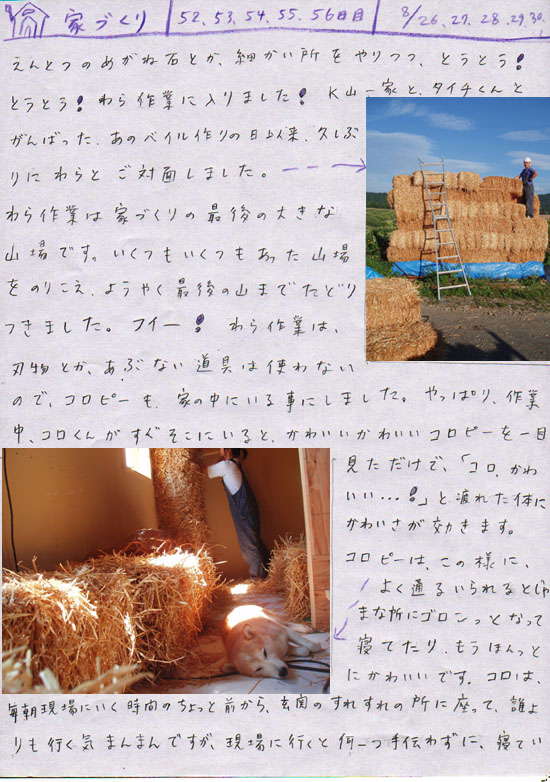 家づくり 52.53.54.55.56日目 8/26.27.28.29.30.
えんとつのめがね石とか、細かい所をやりつつ、とうとう!
とうとう!わら作業に入りました! K山一家と、タイチくんと
がんばった、あのベイル作りの日以来、久しぶ
りにわらとご対面しました。
わら作業は家づくりの最後の大きな
山場です。いくつもいくつもあった山場
をのりこえ、ようやく最後の山までたどり
つきました。フイー! わら作業は、
刃物とか、あぶない道具は使わない
ので、コロピーも、家の中にいる事にしました。やっぱり、作業
中、コロくんがすぐそこにいると、かわいいかわいいコロピーを一目
見ただけで、「コロ、かわ
いい…!」と疲れた体に
かわいさが効きます。
コロピーは、この様に、
よく通るいられるとじゃ
まな所にゴロンっとなって
寝てたり、もうほんっと
にかわいいです。コロは、
毎朝現場にいく時間のちょっと前から、玄関のすれすれの所に座って、誰よ
りも行く気まんまんですが、現場に行くと何一つ手伝わずに、寝てい